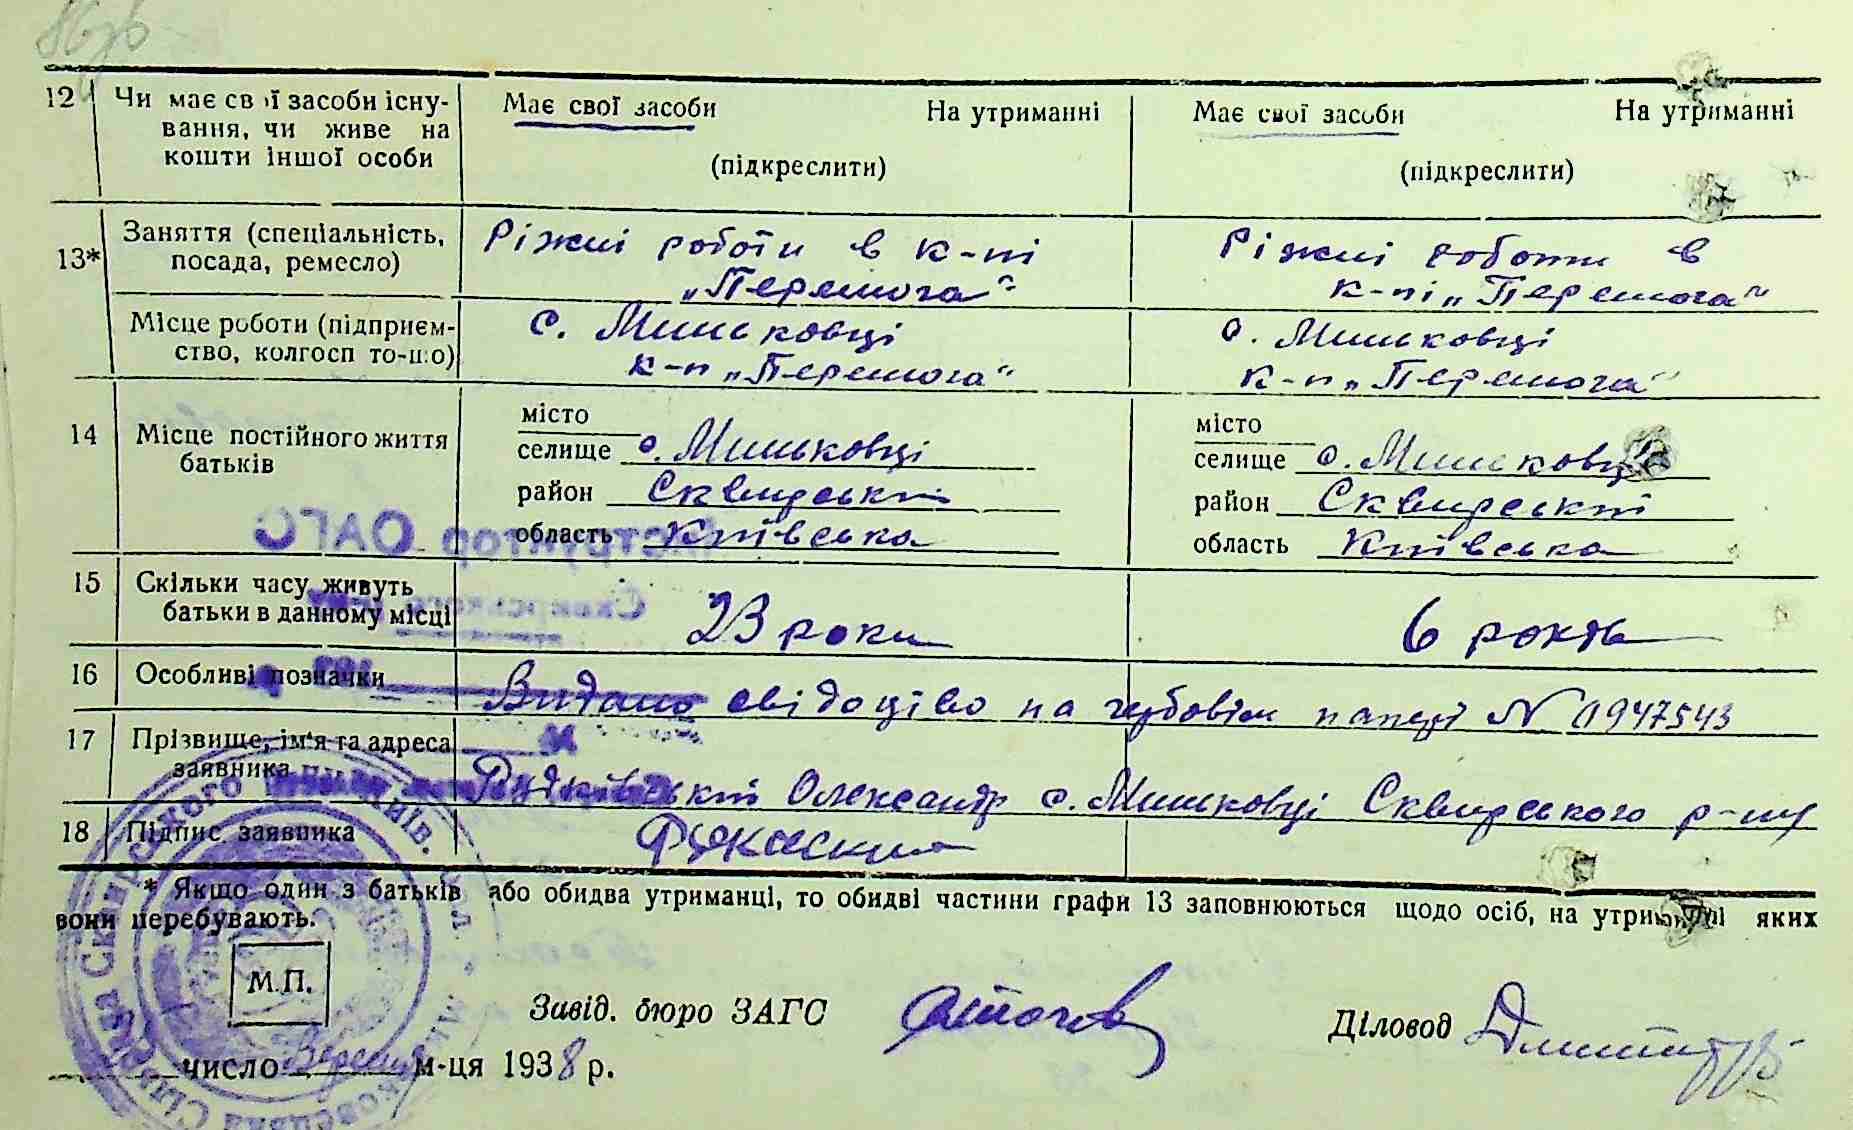 12 Чи має свої засоби існу- Має свої засоби На утриманні Має свої засоби На утриманні
вання, чи живе на
кошти іншої особи (підкреслити) (підкреслити)
13* Заняття (спеціальність, Ріжні роботи в к-пі Ріжні роботи в
посада, ремесло) „Перемога" к-пі „Перемога"
Місце роботи (підприєм- с. Миньковці с. Миньковці
ство, колгосп то-що) к-п „Перемога" к-п „Перемога"
14 Місце постійного життя місто місто
батьків селище с. Миньковці селище с. Миньковці
район Сквирський район Сквирський
область Київська область Київська
Інструктор ОАГС
15 Скільки часу живуть 23 роки 6 років
батьки в данному місці
Сквирського
16 Особливі позначки Видано свідоцтво на гербовім папері № 0947543
17 Прізвище, ім'я та адреса
заявника Олександр с. Миньковці Сквирського р-ну
18 Підпис заявника
* Якщо один з батьків або обидва утриманці, то обидві частини графи 13 заповнюються щодо осіб, на утриманні яких
вони перебувають.
М.П.
Завід. бюро ЗАГС Діловод
число Вересня м-ця 1938 р.